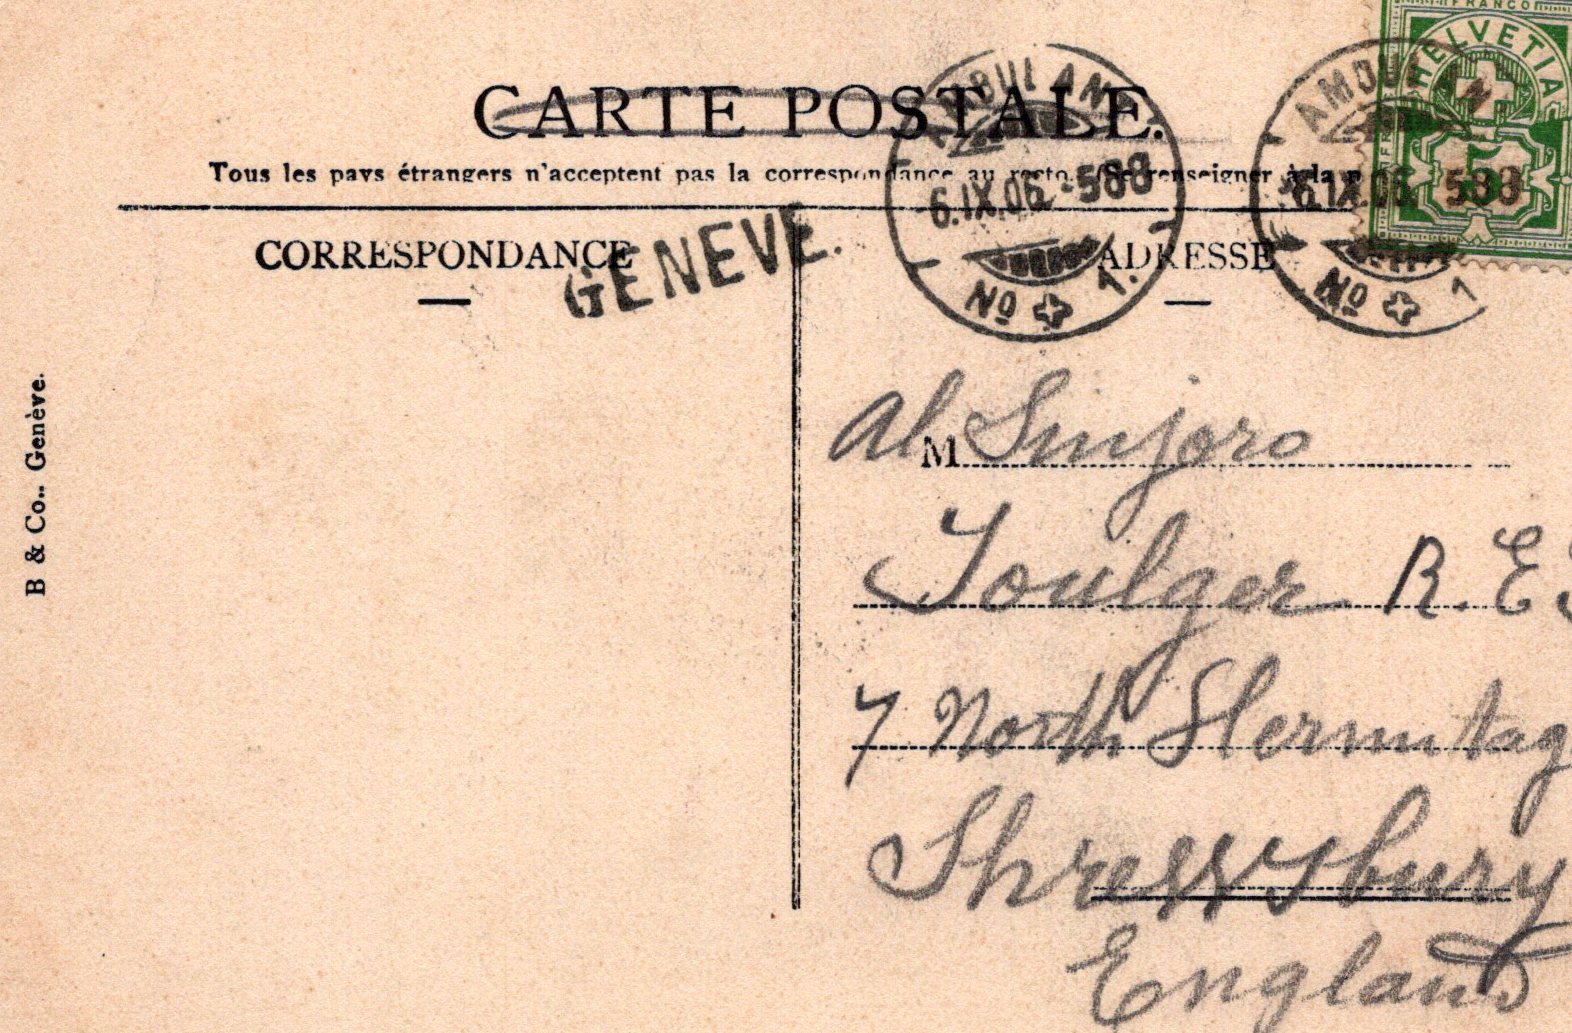 FRANCO
HELVETIA
5
CARTE POSTALE.
AMBULANT
6.IX.06.-588
No 1.
AMBULAN
6.IX.06. 588
No 1
Tous les pays étrangers n'acceptent pas la correspondance au recto. (Se renseigner à la
CORRESPONDANCE
ADRESSE
GENÈVE.
B & Co.. Genève.
Al M Sinjoro
Foulger R. E
7 North Hermitag
Shrewsbury
England